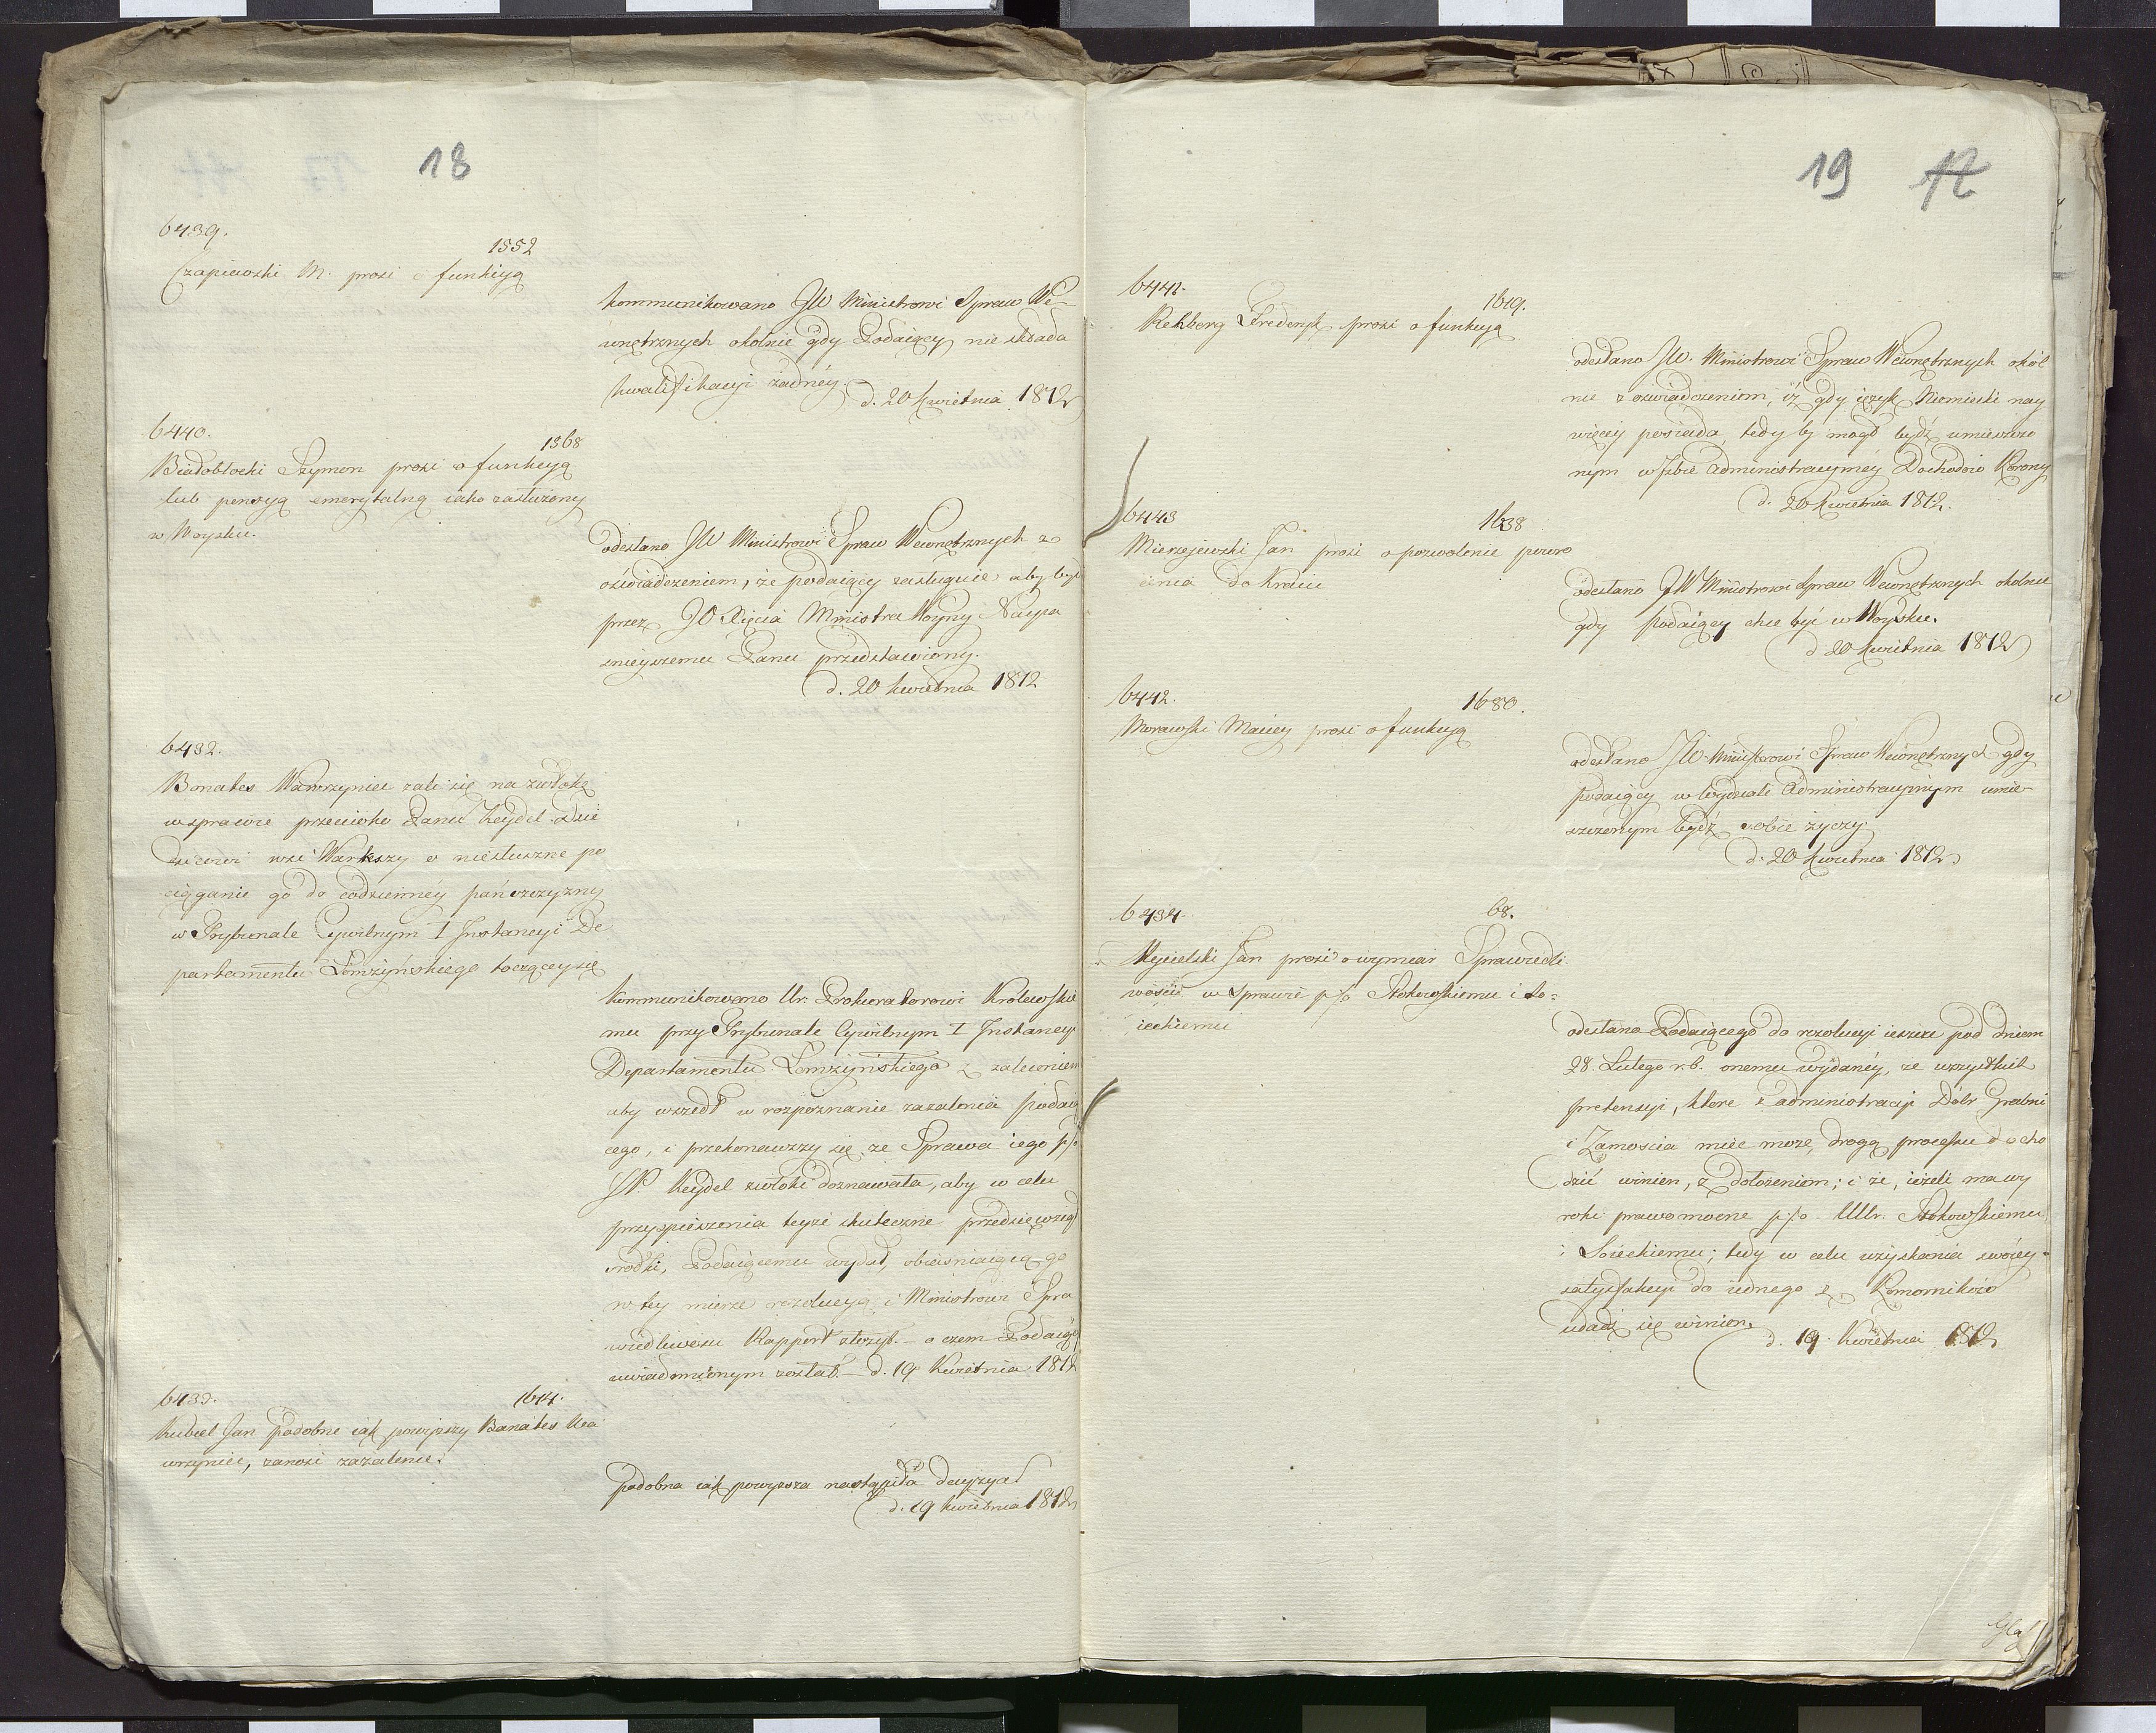 18
6439.
1552
Czapiewski M. prosi o funkcyą
kommunikowano JW Ministrowi Spraw We-
wnętrznych okolnie gdy Podaiący nie składa
kwalifikacyi żadnéy.
d. 20 Kwietnia 1812
6440.
1368
Białobłocki Szymon prosi o funkcyą
lub pensyą emerytalną iako zasłużony
w Woysku.
odesłano JW Ministrowi Spraw Wewnętrznych z
oświadczeniem, że podaiący zasługuie aby był
przez JO Xięcia Ministra Woyny Nayia
śnieyszemu Panu przedstawiony.
d. 20 Kwietnia 1812
6432.
Bonates Wawrzyniec żali się na zwłokę
w sprawie przeciwko Panu Keydel Dzie
dzicowi wsi Warkszy o niesłuszne po
ciąganie go do codziennéy pańszczyzny
w Trybunale Cywilnym I Instancyi De
partamentu Łomżyńskiego toczącey się
kommunikowano Ur. Prokuratorowi Królewskie
mu przy Trybunale Cywilnym I Instancyi
Departamentu Łomżyńskiego z zaleceniem
aby wszedł w rozpoznanie zażalenia podaią
cego, i przekonawszy się że Sprawa iego p/o
JP. Keydel zwłoki doznawała, aby w celu
przyspieszenia teyże skuteczne przedsięwziął
srodki, Podaiącemu wydał, obiaśniaiącą go
w tey mierze rezolucyą i Ministrowi Spra
wiedliwości Rapport złożył. – o czem Podaiący
uwiadomionym został. – d. 19 Kwietnia 1812
6433.
1614.
Kubiel Jan podobne iak powyższy Banates Wa
wrzyniec, zanosi zażalenie.
Podobna iak powyższa nastąpiła decyzya
d. 19 Kwietnia 1812
19 17
6441.
1619.
Rehberg Frederyk prosi o funkcyą
odesłano JW. Ministrowi Spraw Wewnętrznych okól
nie z oświadczeniem, iż gdy ięzyk Niemiecki nay
więcey posiada, tedy by mógł bydź umieszczo
nym w Izbie Administracyinéy Dochodów Korony
d. 20 Kwietnia 1812.
6443
1638
Mierzejewski Jan prosi o pozwolenie powro
cenia do Kraiu
odesłano JW Ministrowi Spraw Wewnętrznych okolnie
gdy podaiący chce być w Woysku.
d 20 Kwietnia 1812
6442.
1680.
Morawski Maciey prosi o funkcyą
odesłano JW. Ministrowi Spraw Wewnętrznych gdy
podaiący w Wydziale Administracyinym umie-
szczonym bydź sobie życzy
d. 20 Kwietnia 1812
6434.
68.
Mycielski Jan prosi o wymiar Sprawiedli
wości w Sprawie p/o Stokowskiemu i So-
ieckiemu
odesłano Podaiącego do rezolucyi ieszcze pod dniem
28. Lutego r.b. onemu wydanéy, że wszystkich
pretensyi, które z administracyi Dóbr Grabni
i Zamościa mieć może, drogą processu docho
dzić winien, z dołożeniem; i że, ieżeli ma wy
roki prawomocne p/o UUr. Stokowskiemu
i Soieckiemu; tedy w celu uzyskania swoiey
satysfakcyi do iednego z Komorników
udadź się winien.
d. 19. Kwietnia 1812